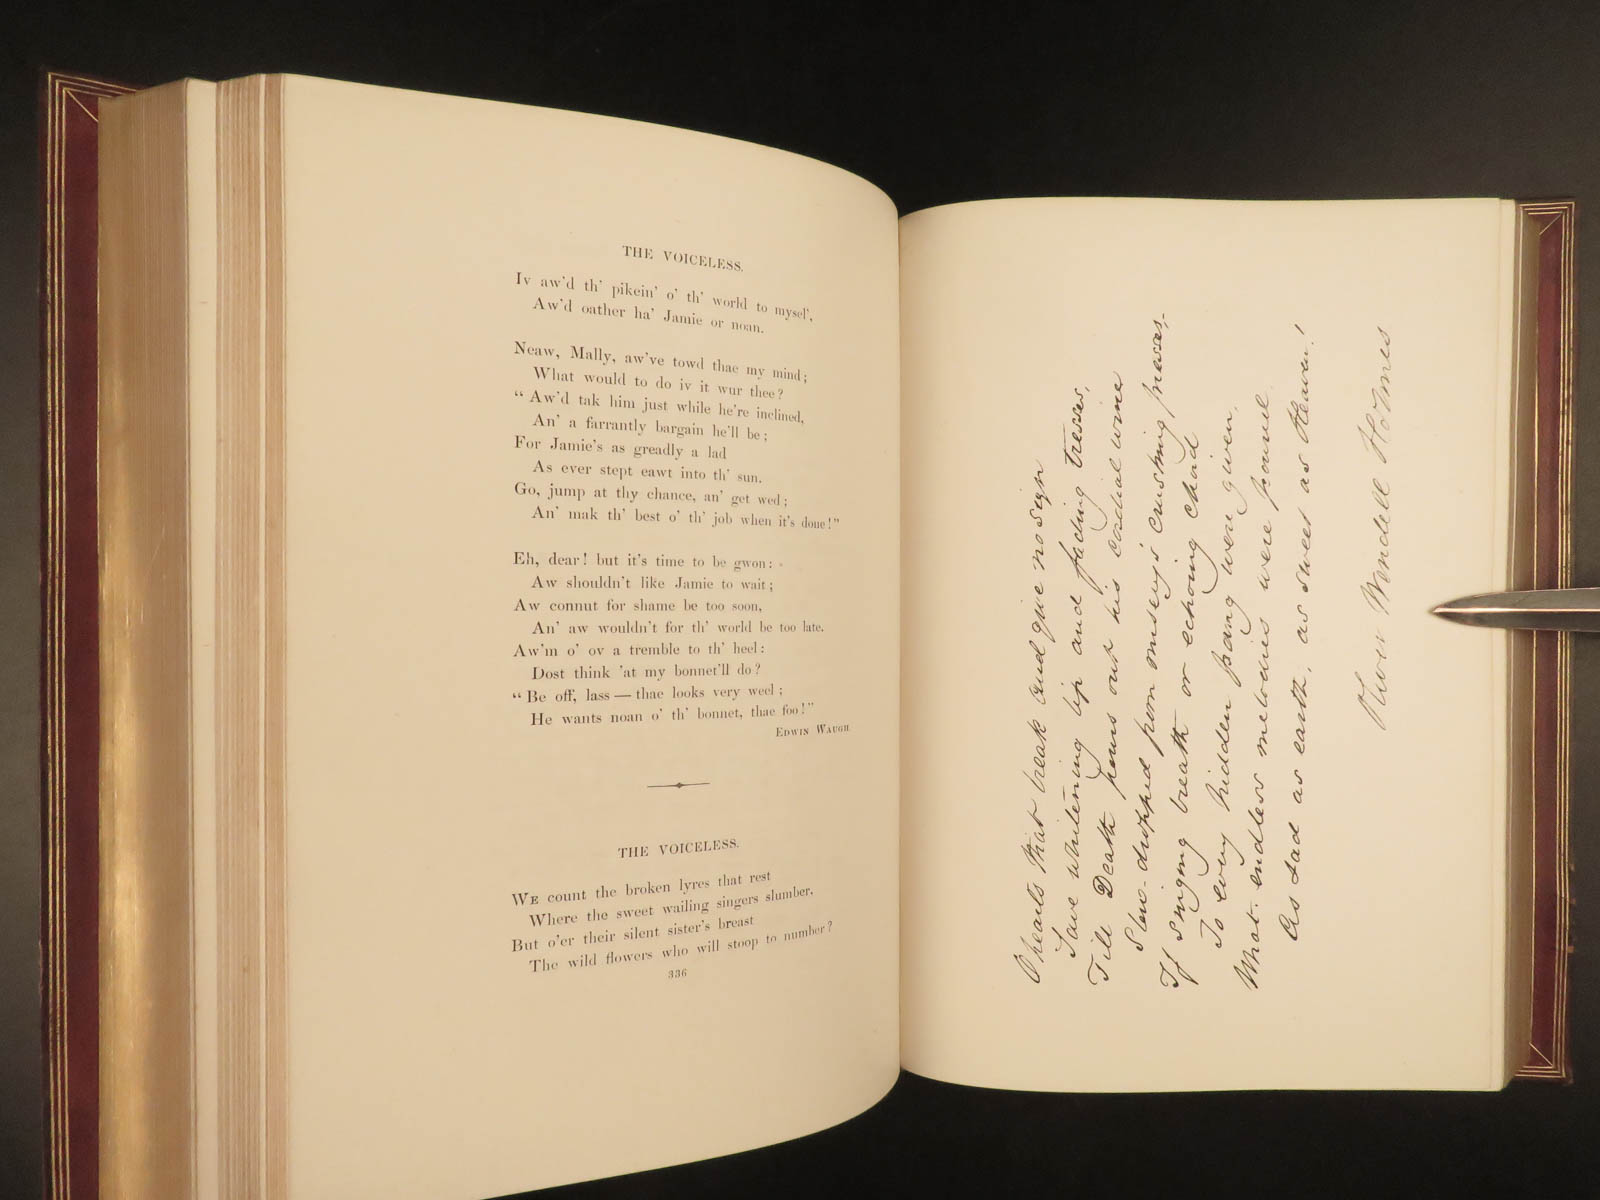 THE VOICELESS.
Iv aw'd th' pikein' o' th' world to mysel',
Aw'd oather ha' Jamie or noan.
Neaw, Mally, aw've towd thae my mind;
What would to do iv it wur thee?
"Aw'd tak him just while he're inclined,
An' a farrantly bargain he'll be;
For Jamie's as greadly a lad
As ever stept eawt into th' sun.
Go, jump at thy chance, an' get wed;
An' mak th' best o' th' job when it's done!"
Eh, dear! but it's time to be gwon:
Aw shouldn't like Jamie to wait;
Aw connut for shame be too soon,
An' aw wouldn't for th' world be too late.
Aw'm o' ov a tremble to th' heel:
Dost think 'at my bonnet'll do?
"Be off, lass — thae looks very weel;
He wants noan o' th' bonnet, thae foo!"
EDWIN WAUGH.
THE VOICELESS.
WE count the broken lyres that rest
Where the sweet wailing singers slumber,
But o'er their silent sister's breast
The wild flowers who will stoop to number?
336
O hearts that break and give no sign
Save whitening lip and fading tresses,
Till Death pours out his cordial wine
Slow-dropped from misery's crushing presses,—
If singing breath or echoing chord
To every hidden pang were given,
What endless melodies were poured
As sad as earth, as sweet as Heaven!
Oliver Wendell Holmes